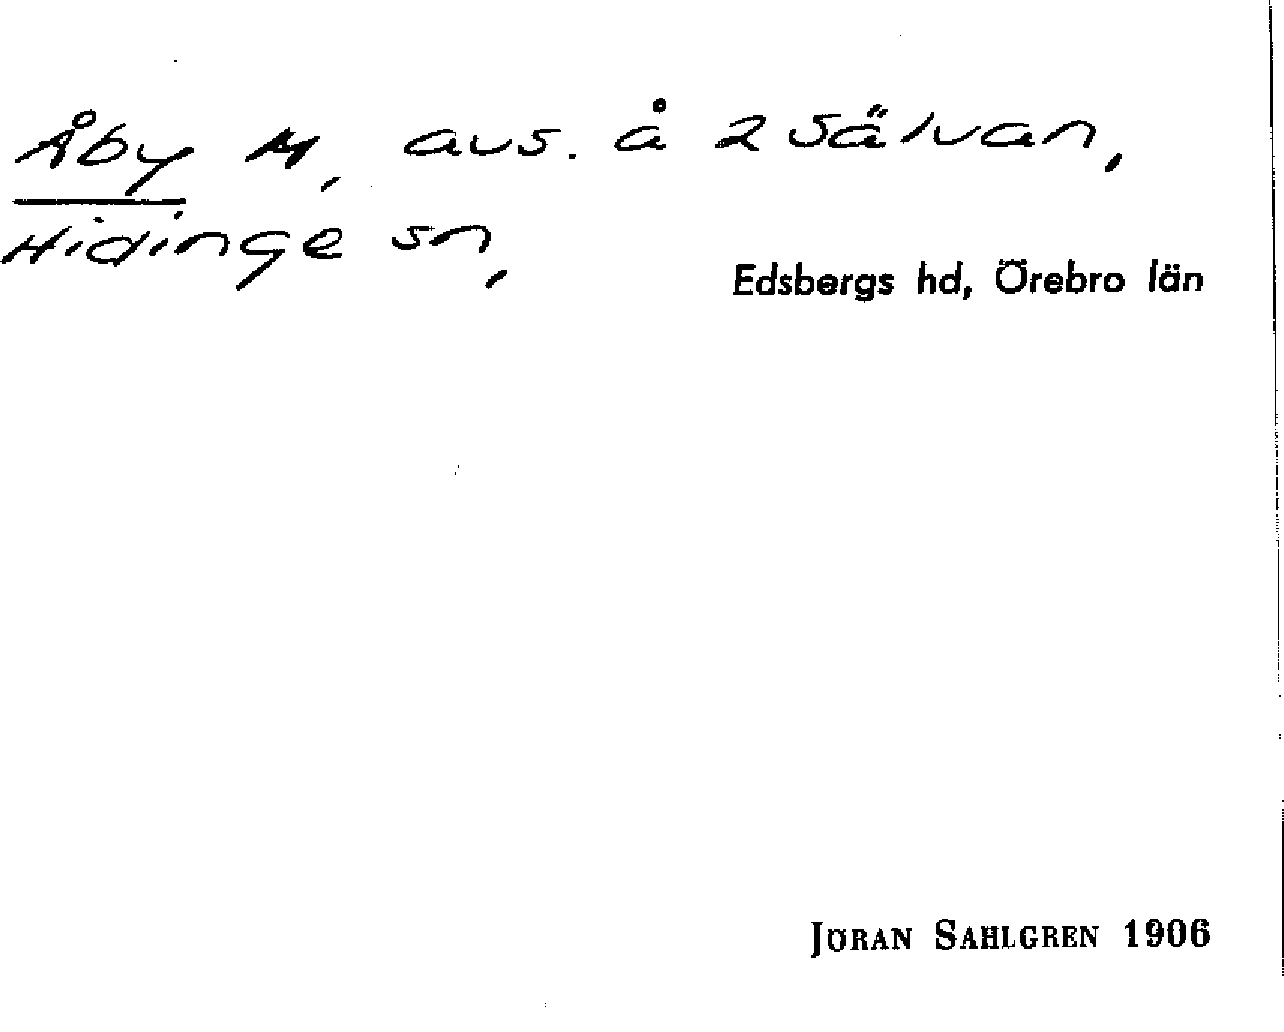 Åby M, avs. å 2 Sälvan,
Hidinge sn,
Edsbergs hd, Örebro län
JÖRAN SAHLGREN 1906